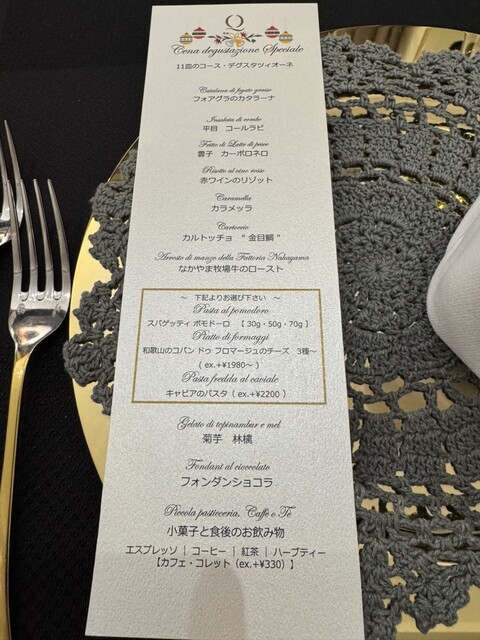 Q
Cena degustazione Speciale
11皿のコース・デグスタツィオーネ
Catalana di fegato grasso
フォアグラのカタラーナ
Insalata di rombo
平目 コールラビ
Fritto di Latte di pesce
雲子 カーボロネロ
Risotto al vino rosso
赤ワインのリゾット
Caramella
カラメッラ
Cartoccio
カルトッチョ “ 金目鯛 ”
Arrosto di manzo della Fattoria Nakayama
なかやま牧場牛のロースト
～ 下記よりお選び下さい ～
Pasta al pomodoro
スパゲッティ ポモドーロ 【 30g・50g・70g 】
Piatto di formaggi
和歌山のコパン ドゥ フロマージュのチーズ 3種～
( ex.+¥1980～ )
Pasta fredda al caviale
キャビアのパスタ ( ex.+¥2200 )
Gelato di topinambur e mel
菊芋 林檎
Fondant al cioccolato
フォンダンショコラ
Piccola pasticceria, Caffè o Tè
小菓子と食後のお飲み物
エスプレッソ | コーヒー | 紅茶 | ハーブティー
【カフェ・コレット（ex.+¥330）】